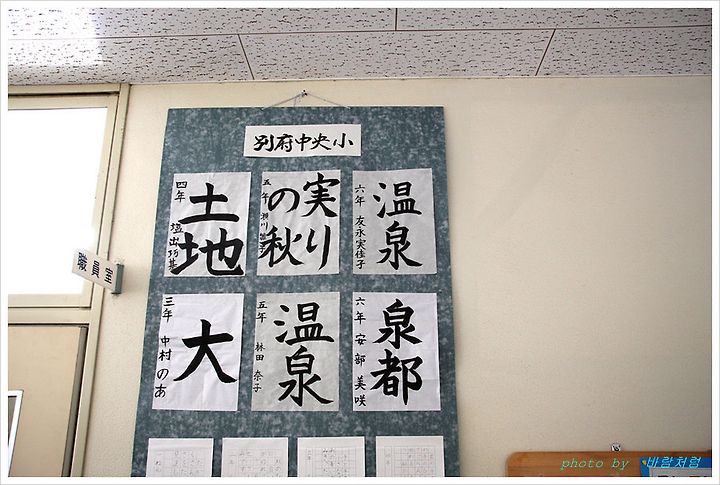 別府中央小
温泉
六年 友永実佳子
実り
の秋
五年
土地
四年
職員室
泉都
六年 安部美咲
温泉
五年 林田奈子
大
三年 中村のあ
photo by 바람처럼